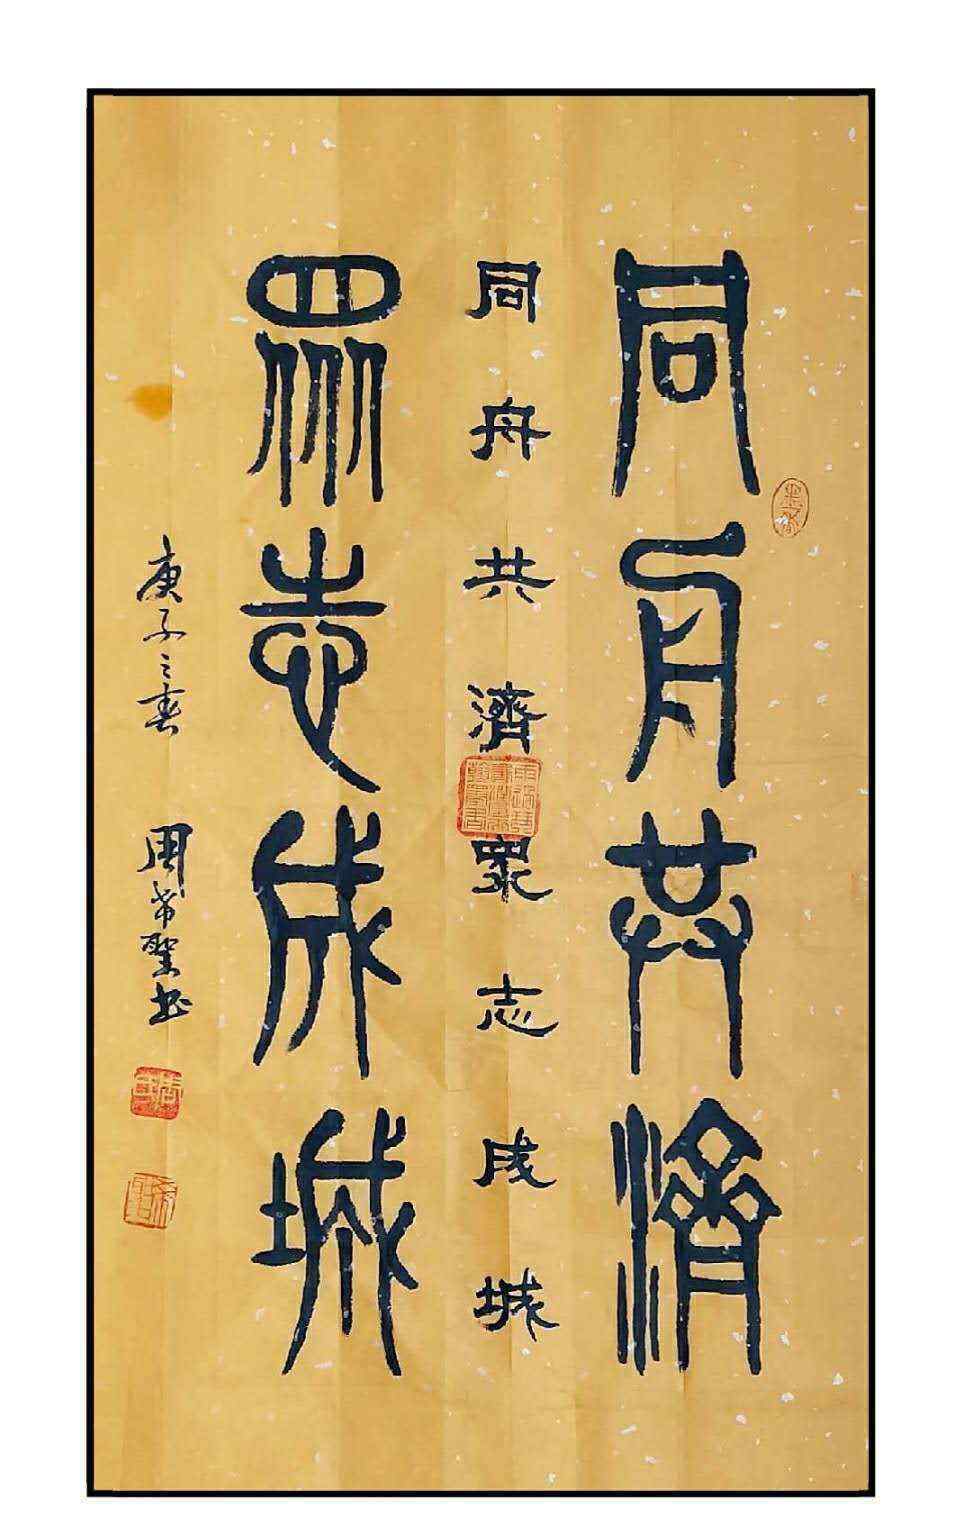 同舟共濟
同舟共濟眾志成城
眾志成城
庚子之春 周希聖書